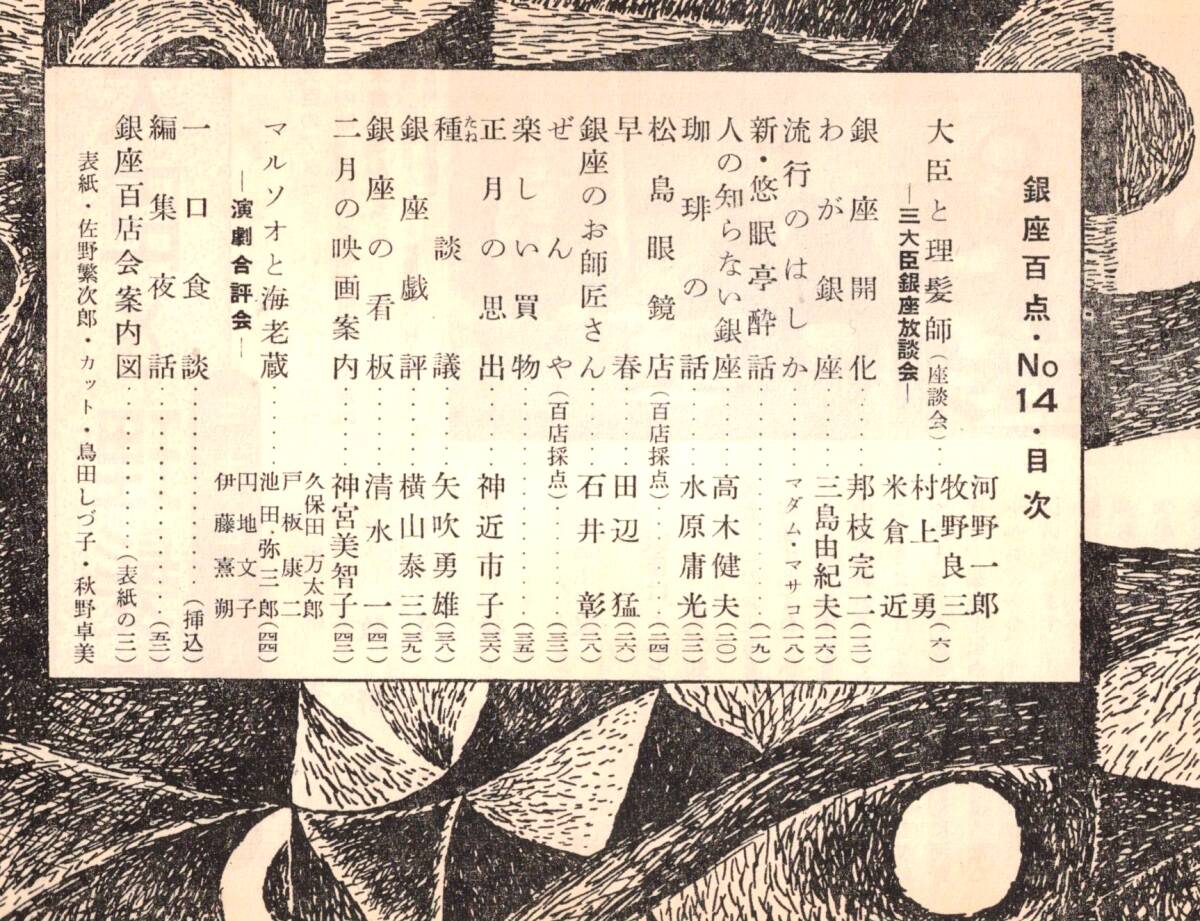 銀座百点・No14・目次
大臣と理髪師(座談会)
―三大臣銀座放談会―
河野一郎
牧野良三
村上勇
米倉近
(六)
銀座開化……邦枝完二(一二)
わが銀座……三島由紀夫(一六)
流行のはしか……マダム・マサコ(一八)
新・悠眠亭酔話……(一九)
人の知らない銀座……高木健夫(二〇)
珈琲の話……水原庸光(二二)
松島眼鏡店(百店採点)……(二四)
早春……田辺猛(二六)
銀座のお師匠さん……石井彰(二八)
ぜんや(百店採点)……(三二)
楽しい買物……(三五)
正月の思出……神近市子(三六)
種たね談議……矢吹勇雄(三八)
銀座戯評……横山泰三(三九)
銀座の看板……清水一(四一)
二月の映画案内……神宮美智子(四二)
マルソオと海老蔵……
―演劇合評会―
久保田万太郎
戸板康二
池田弥三郎
円地文子
伊藤熹朔
(四四)
一口食談……(挿込)
編集夜話……(五二)
銀座百店会案内図……(表紙の三)
表紙・佐野繁次郎・カット・鳥田しづ子・秋野卓美